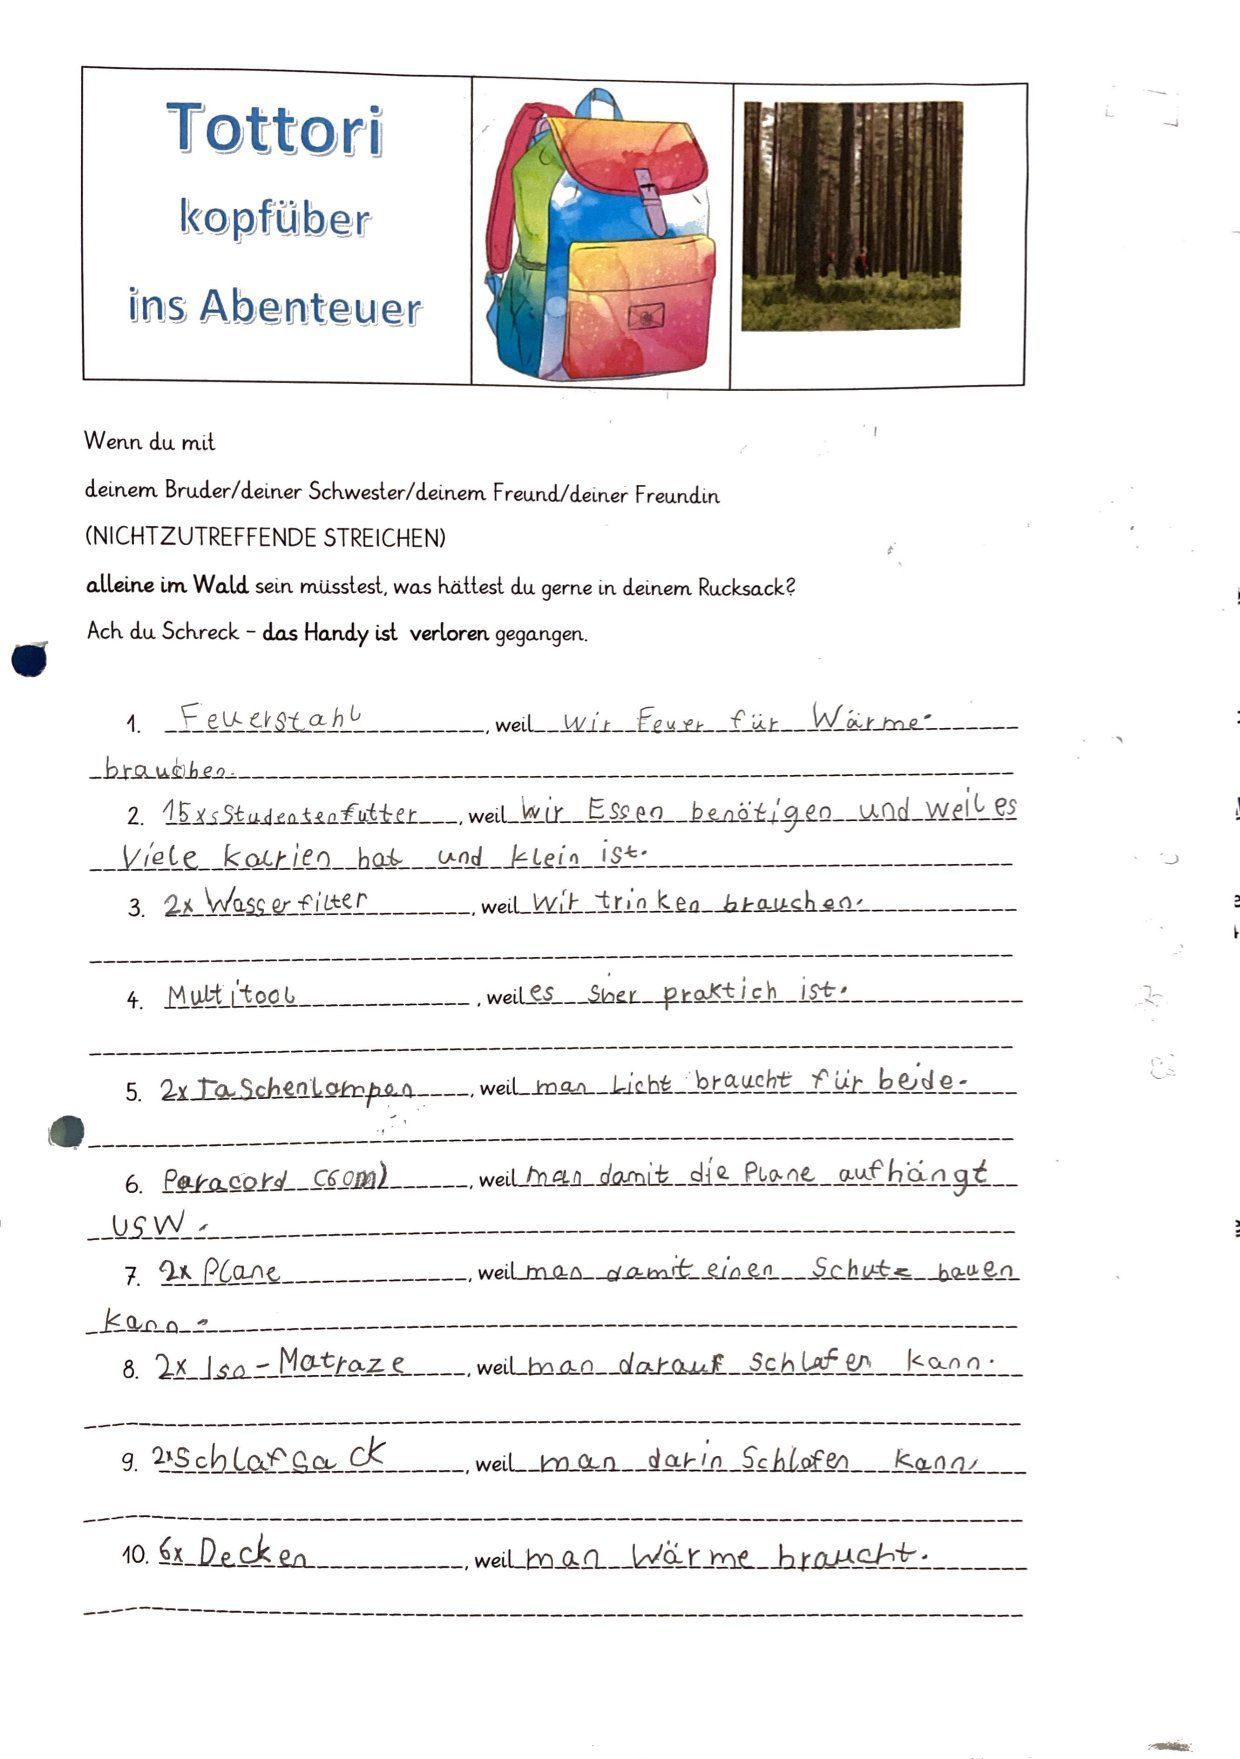 Tottori
kopfüber
ins Abenteuer
Wenn du mit
deinem Bruder/deiner Schwester/deinem Freund/deiner Freundin
(NICHTZUTREFFENDE STREICHEN)
alleine im Wald sein müsstest, was hättest du gerne in deinem Rucksack?
Ach du Schreck – das Handy ist verloren gegangen.
1. Feuerstahl, weil wir Feuer für Wärme
brauchen.
2. 15xsStudentenfutter, weil wir Essen benötigen und weil es
Viele kalrien hat und klein ist.
3. 2x Wasserfilter, weil wir trinken brauchen.
4. Multitool, weil es sher praktich ist.
5. 2x Taschenlampen, weil man Licht braucht für beide.
6. Paracord (60m), weil man damit die Plane aufhängt
USW.
7. 2x Plane, weil man damit einen Schutz bauen
kann.
8. 2x Iso-Matraze, weil man darauf schlafen kann.
9. 2x Schlafsack, weil man darin Schlafen kann.
10. 6x Decken, weil man Wärme braucht.